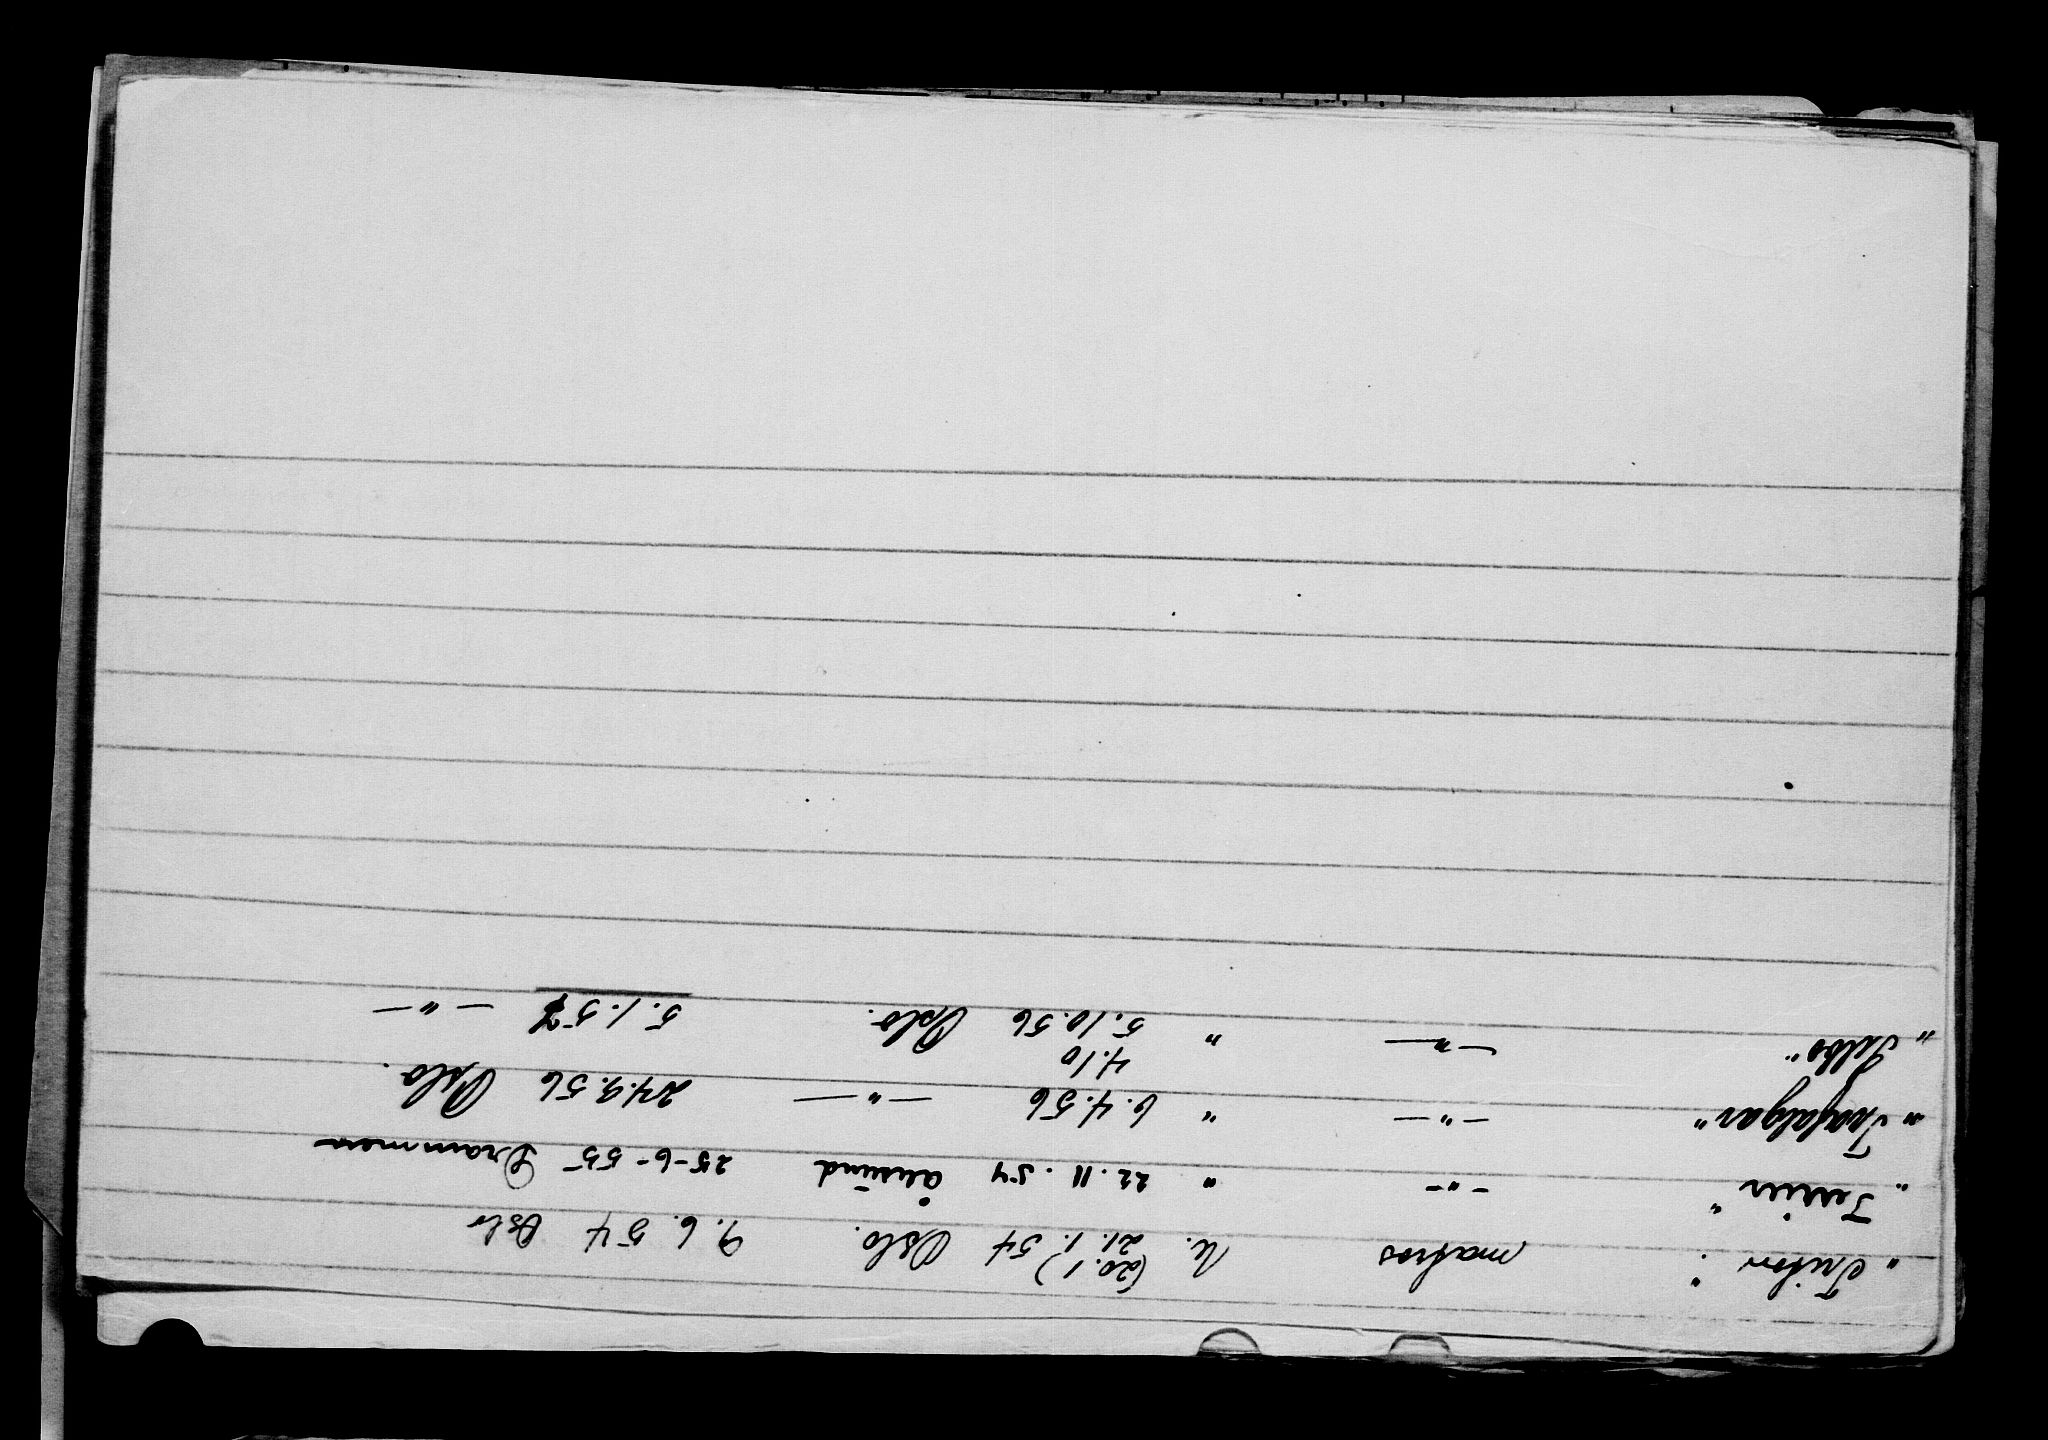 "Triton". matros U. (20.1) 21.1.54 Oslo. 9.6.54 Oslo
"Terrier" -"- " 22.11.54 Ålesund 25-6-55 Drammen
"Trafalgar" -"- " 6.4.56 -"- 24.9.56 Oslo.
4.10
"Selbo" -"- " 5.10.56 Oslo. 5.1.57 -"-